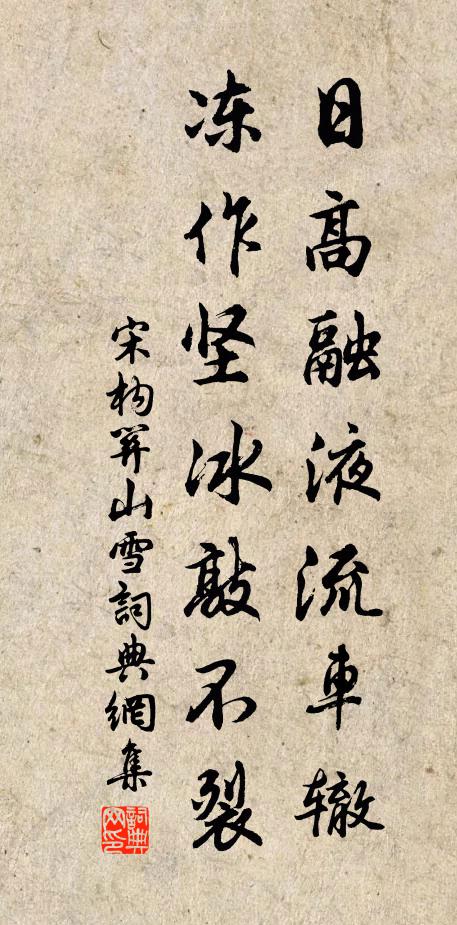 日高融液流車辙
冻作坚冰敲不裂
宋构關山雪詞典網集
詞典网印